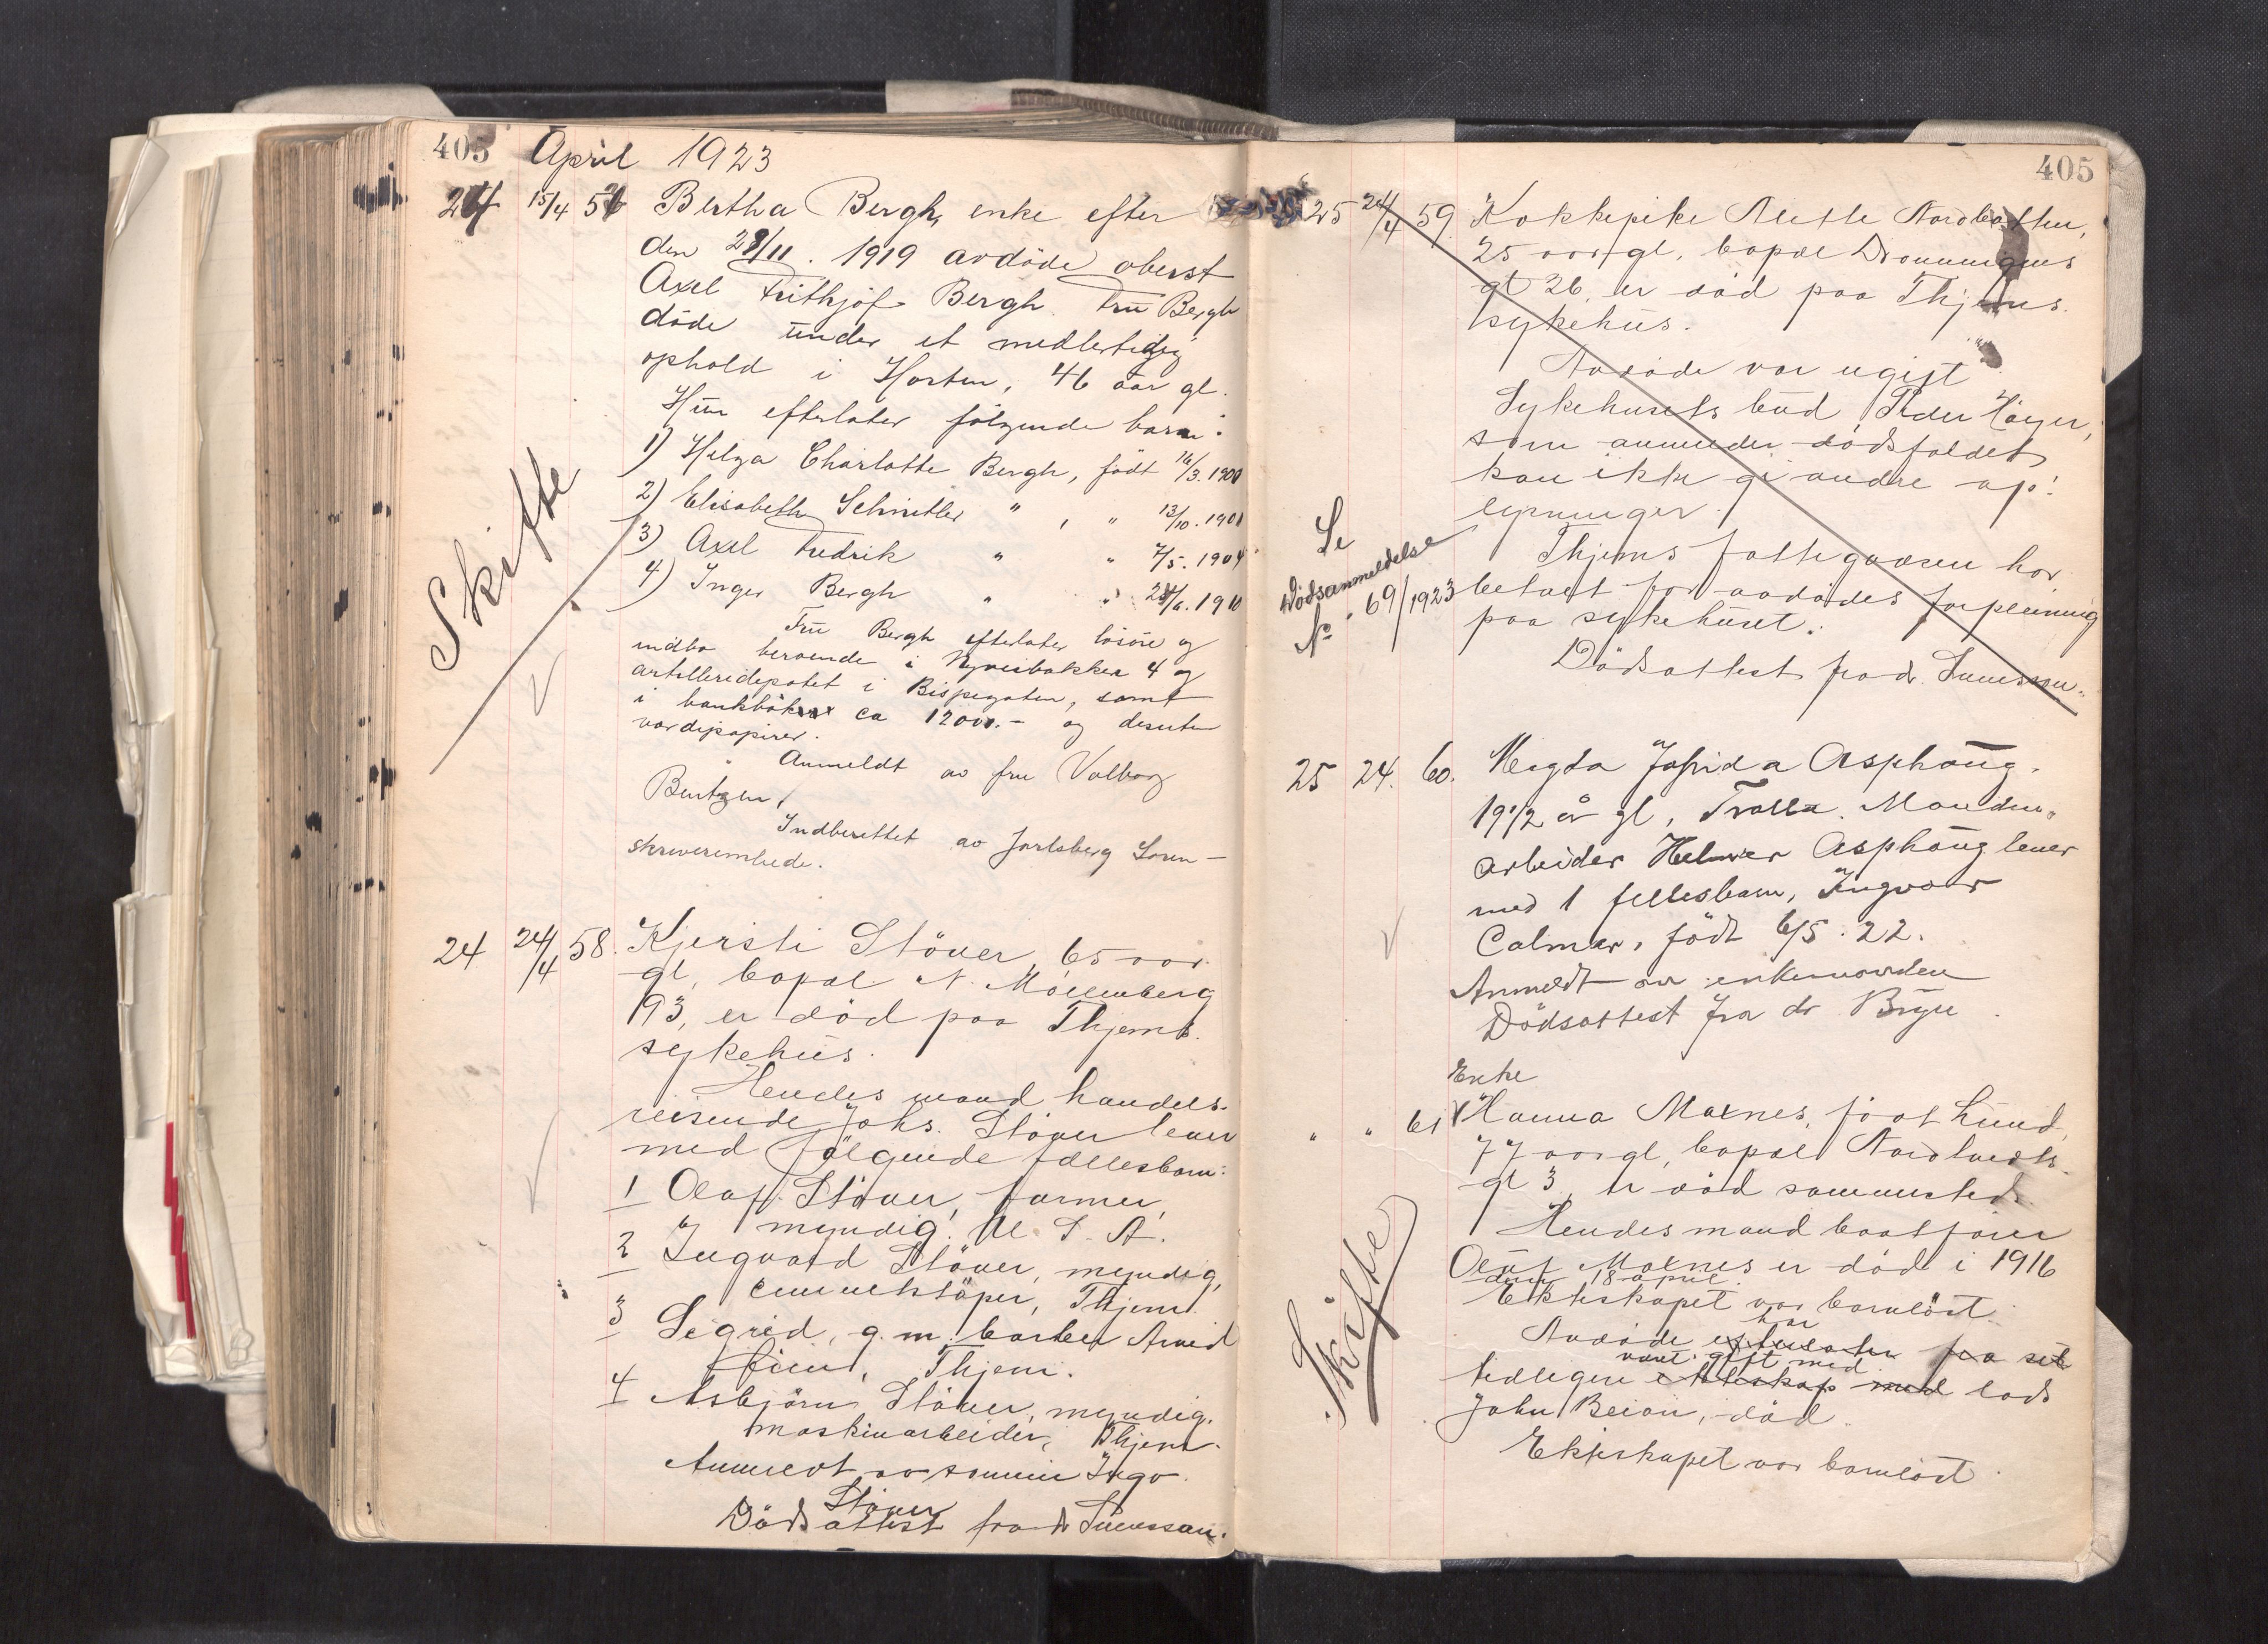 405 April 1923
24 15/4 58 Bertha Bergh, enke efter
den 28/11. 1919 avdöde oberst
Axel Frithjof Bergh. Fru Bergh
döde under et midlertidig
ophold i Horten, 46 aar gl.
Hun efterlater följende barn:
1) Helga Charlotte Bergh, født 16/3. 1900
2) Elisabeth Schnitler " , " 13/10. 1901
3) Axel Fredrik " " 7/5. 1904
4) Inger Bergh " " 1910
Skifte
Fru Bergh efterlater lösöre og
indbo beroende i Nyveibakken 4 og
artilleridepotet i Bispegaten, samt
i bankböker ca 12000.- og desuten
verdipapirer.
Anmeldt av fru Valborg
Berntzen.
Indberettet av Jarlsberg Soren-
skriverembede.
24 24/4 58. Kjersti Stöver, 65 aar
gl, bopæl N. Möllenberg
93, er död paa Thjems
sykehus.
Hendes mand handels-
reisende Johs. Stöver lever
med fölgende fællesbarn:
1 Olaf Stöver, farmer,
myndig. U. S. A.
2 Ingvald Stöver, myndig,
Thjem.
3 Sigrid, g. m. barber Arvid
Thjem.
4 Asbjörn Stöver, myndig.
maskinarbeider, Thjem.
Anmeldt av sönnen Ingv.
Stöver
Dödsattest fra dr
405
25 24/4 59. Kokkepike Mette
25 aar gl, bopæl Dronningens
gt 26, er död paa Thjems
sykehus.
Avdöde var ugift
Sykehusets bud Peder Höyer,
som anmelder dödsfaldet
kan ikke gi andre op-
lysninger.
Thjems fattigvæsen har
betalt for avdödes forpleining
paa sykehuset.
Dödsattest fra dr.
Se
Dödsanmeldelse
No 69/1923
25 24. 60. Magda Josfrida Asphaug.
19 1/2 år gl, Trolla. Manden,
arbeider Helmer Asphaug lever
med 1 fellesbarn, Ingvar
Calmar, födt 6/5. 22.
Anmeldt av enkemanden
Dödsattest fra dr Bryn
Enke
" " 61 Hanna Moxnes, född Lund,
77 aar gl, bopæl
gt 3, er död sammesteds.
Hendes mand baatförer
Oluf Moxnes er död i 1916
den 18 april.
Ekteskapet var barnlöst.
har
Avdöde efterlater fra sit
vært gift med
tidligere ekteskap med lods
John Beian, död.
Ekteskapet var barnlöst
Skifte